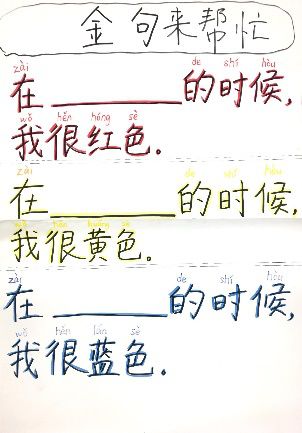 金句来帮忙
zài de shí hòu
在__________的时候,
wǒ hěn hóng sè
我很红色.
zài de shí hòu
在__________的时候,
wǒ hěn huáng sè
我很黄色.
zài de shí hòu
在__________的时候,
wǒ hěn lán sè
我很蓝色.